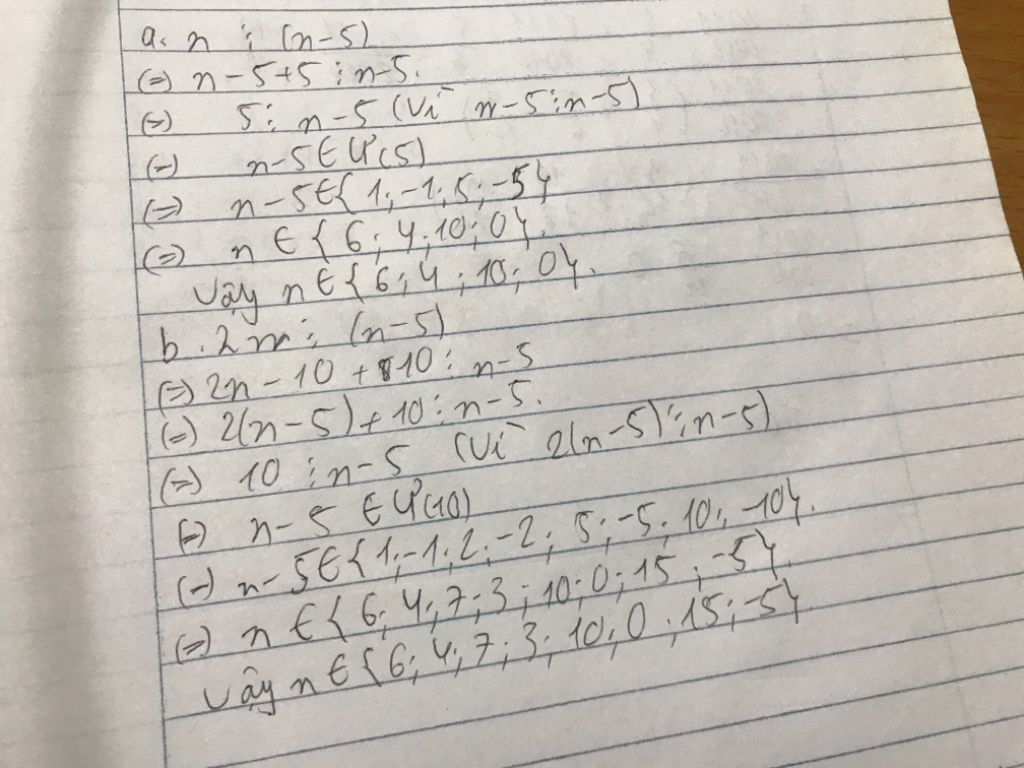 a. n ⋮ (n-5)
(=) n - 5+5 ⋮ n-5.
(=) 5 ⋮ n-5 (Vì n-5 ⋮ n-5)
(=) n-5 ∈ Ư(5)
(=) n-5 ∈ { 1; -1; 5; -5}
(=) n ∈ { 6; 4; 10; 0}.
Vậy n ∈ { 6; 4; 10; 0}.
b. 2n ⋮ (n-5)
(=) 2n - 10 + 10 ⋮ n-5
(=) 2(n-5) + 10 ⋮ n-5.
(=) 10 ⋮ n-5 (Vì 2(n-5) ⋮ n-5)
(=) n-5 ∈ Ư(10)
(=) n-5 ∈ { 1; -1; 2; -2; 5; -5; 10; -10}.
(=) n ∈ { 6; 4; 7; 3; 10; 0; 15; -5}.
Vậy n ∈ { 6; 4; 7; 3; 10; 0; 15; -5}